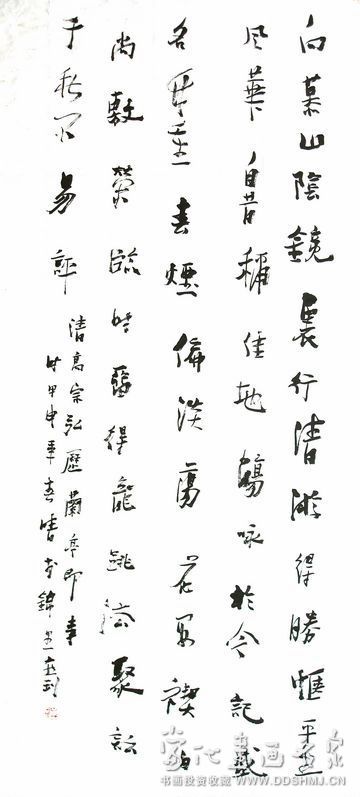 向慕山陰鏡裏行清游得勝愜平生
風華自昔稱佳地觴咏於今記盛
名竹重春煙偏淡蕩花遲禊日
尚敷榮臨池留得龍跳法聚訟
千秋不易評
清高宗弘歷蘭亭即事
甲申年春
当代书画名家
书画投资收藏 WWW.DDSHMJ.COM